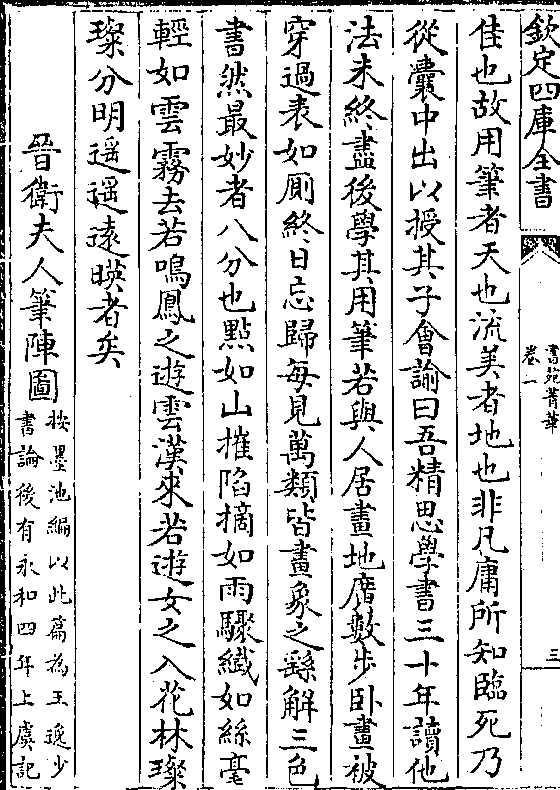 欽定四庫全書
書苑菁華
卷一
三
佳也故用筆者天也流美者地也非凡庸所知臨死乃
從囊中出以授其子會諭曰吾精思學書三十年讀他
法未終盡後學其用筆若與人居畫地廣數步卧畫被
穿過表如厠終日忘歸每見萬類皆畫象之繇解三色
書然最妙者八分也點如山摧陷摘如雨驟纖如絲毫
輕如雲霧去若鳴鳳之遊雲漢來若遊女之入花林璨
璨分明遥遥遠暎者矣
晉衛夫人筆陣圖
按墨池編以此篇為王逸少
書論後有永和四年上虞記